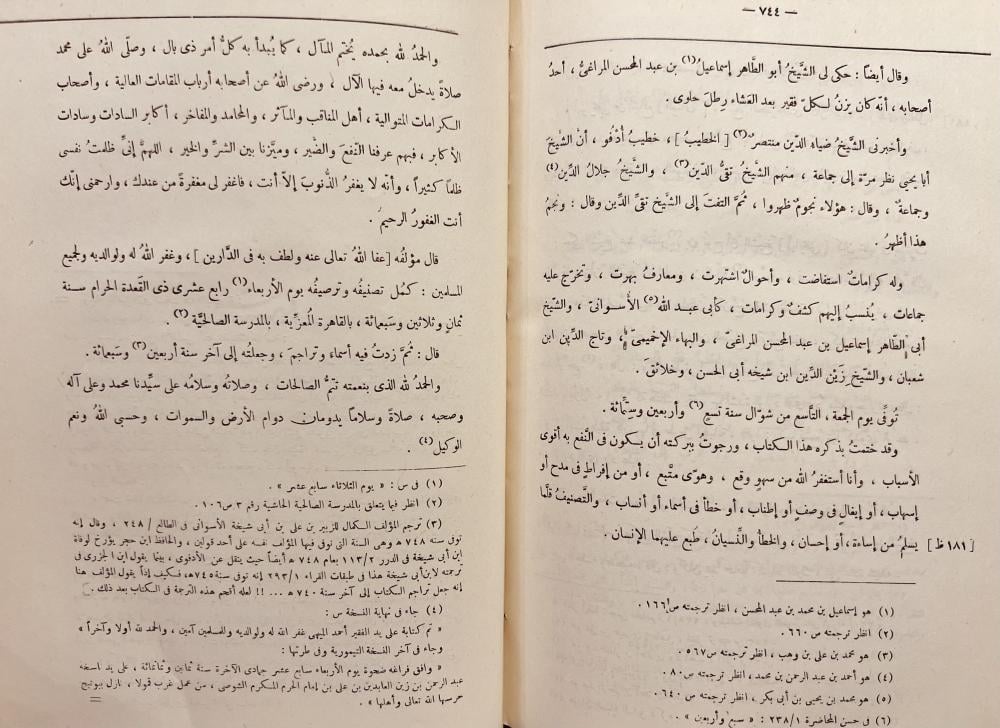 — ٧٤٤ —
وقال أيضاً : حكى لى الشَّيخُ أبو الطَّاهر إسماعيلُ (١) بن عبد المحسن المراغىُّ ، أحدُ
أصحابه ، أنّه كان يزنُ لكلّ فقير بعد العَشاء رِطلَ حلوى .
وأخبرنى الشَّيخُ ضياء الدِّين منتصرٌ (٢) [ الخطيبُ ] ، خطيبُ أُدْفُو ، أنَّ الشَّيخَ
أبا يحيى نظر مرّة إلى جماعة ، منهم الشَّيخُ تقىُّ الدِّين (٣) ، والشَّيخُ جلالُ الدِّين (٤)
وجماعةٌ ، وقال : هؤلاء نجومٌ ظهروا ، ثُمَّ التفتَ إلى الشَّيخ تقىِّ الدِّين وقال : ونجمُ
هذا أظهرُ .
وله كراماتٌ استفاضت ، وأحوالٌ اشتهرت ، ومعارفُ بهرت ، وتخرّج عليه
جماعات ، يُنسبُ إليهم كشفٌ وكرامات ، كأبى عبد الله (٥) الأُسوانىِّ ، والشَّيخ
أبى الطَّاهر إسماعيل بن عبد المحسن المراغىِّ ، والبهاء الإخميمىِّ ، وتاج الدِّين ابن
شعبان ، والشَّيخ زَيْن الدِّين ابن شيخه أبى الحسن ، وخلائقَ .
تُوفِّى يوم الجمعة ، التَّاسع من شوّال سنة تسعٍ (٦) وأربعين وستِّمائة .
وقد ختمتُ بذكره هذا الكتاب ، ورجوتُ ببركته أن يسكون فى النَّفع به أقوى
الأسباب ، وأنا أستغفرُ الله من سهوٍ وقع ، وهوًى متّبع ، أو من إفراطٍ فى مدح أو
إسهاب ، أو إيغالٍ فى وصفٍ أو إطناب ، أو خطأ فى أسماء أو أنساب ، والتَّصنيفُ قلَّما
[ ١٨١ ظ ] يسلمُ من إساءة ، أو إحسان ، والخطأُ والنِّسيانُ ، طَبع عليهما الإنسان .
(١) هو إسماعيل بن محمد بن عبد المحسن ، انظر ترجمته ص ١٦٦ .
(٢) انظر ترجمته ص ٦٦٠ .
(٣) هو محمد بن على بن وهب ، انظر ترجمته ص ٥٦٧ .
(٤) هو أحمد بن عبد الرحمن بن محمد ، انظر ترجمته ص ٨٠ .
(٥) هو محمد بن يحيى بن أبى بكر ، انظر ترجمته ص ٦٤٠ .
(٦) فى حسن المحاضرة ٢٣٨/١ : « سبع وأربعين » .
والحمدُ لله بحمده يُختم المآل ، كما يُبدأ به كلُّ أمر ذى بال ، وصلّى اللهُ على محمد
صلاةً يدخلُ معه فيها الآل ، ورضى اللهُ عن أصحابه أرباب المقامات العالية ، وأصحاب
الكرامات المتوالية ، أهل المناقب والمآثر ، والمحامد والمفاخر ، أكابر السادات وسادات
الأكابر ، فبهم عرفنا النّفعَ والضَّير ، وميّزنا بين الشرّ والخير ، اللهمّ إنّى ظلمتُ نفسى
ظلماً كثيراً ، وأنّه لا يغفرُ الذُّنوبَ إلاّ أنت ، فاغفر لى مغفرةً من عندك ، وارحمنى إنّك
أنت الغفورُ الرحيمُ .
قال مؤلفُه [ عفا اللهُ تعالى عنه ولطف به فى الدَّارين ] ، وغفر اللهُ له ولوالديه ولجميع
المسلمين : كمُل تصنيفُه وترصيفُه يوم الأربعاء (١) رابع عشرى ذى القَعدة الحرام سنة
ثمانٍ وثلاثين وسَبعمائة ، بالقاهرة المُعزِّيّة ، بالمدرسة الصالحيَّة (٢) .
قال : ثُمَّ زدتُ فيه أسماء وتراجمَ ، وجعلتُه إلى آخر سنة أربعين (٣) وسَبعمائة .
والحمدُ لله الذى بنعمته تتمُّ الصالحات ، وصلاتُه وسلامُه على سيِّدنا محمد وعلى آله
وصحبه ، صلاةً وسلاماً يدومان دوام الأرض والسموات ، وحسبى اللهُ ونعم
الوكيل (٤) .
(١) فى س : « يوم الثلاثاء سابع عشر » .
(٢) انظر فيما يتعلق بالمدرسة الصالحية الحاشية رقم ٣ ص ١٠٦ .
(٣) ترجم المؤلف الكمال للزبير بن على بن أبى شيخة الأسوانى فى الطالع / ٢٤٨ ، وقال إنه
توفى سنه ٧٤٨ ه وهى السنة التى توفى فيها المؤلف نفسه على أحد قولين ، والحافظ ابن حجر يؤرخ لوفاة
ابن أبى شيخة فى الدرر ١١٣/٢ بعام ٧٤٨ ه أيضاً حيث ينقل عن الأدفوى ، بينما يقول ابن الجزرى فى
ترجمته لابن أبى شيخة هذا فى طبقات القراء ٢٩٣/١ إنه توفى سنة ٧٤٥ه، فكيف إذاً يقول المؤلف هنا
إنه جعل تراجم الكتاب إلى آخر سنة ٧٤٠ ه ... !! لعله أقحم هذه الترجمة فى الكتاب بعد ذلك .
(٤) جاء فى نهاية النسخة س :
« تم كتابة على يد الفقير أحمد الميهى غفر الله له ولوالديه وللمسلمين آمين ، والحمد لله أولا وآخراً »
وجاء فى آخر النسخة التيمورية وفى طرتها :
« وافق فراغه ضحوة يوم الأربعاء سابع عشر جمادى الآخرة سنة ثمانين وثمانمائة ، على يد ناسخه
عبد الرحمن بن زين العابدين بن على بن إمام الحرم المسكرم القوصى ، من عمل غرب قمولا ، نازل ببوتيج
حرسها الله تعالى وأهلها » .